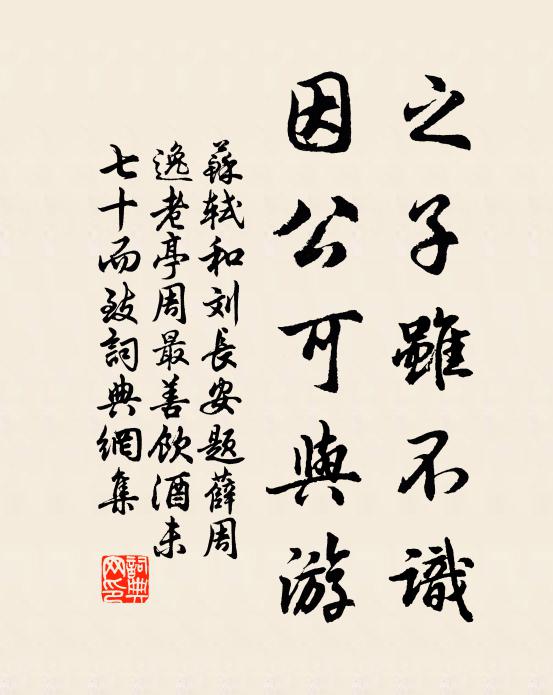 之子雖不識
因公可與游
蘇軾和刘長安题薛周
逸老亭周最善飲酒未
七十而致詞典網集
詞典
网印